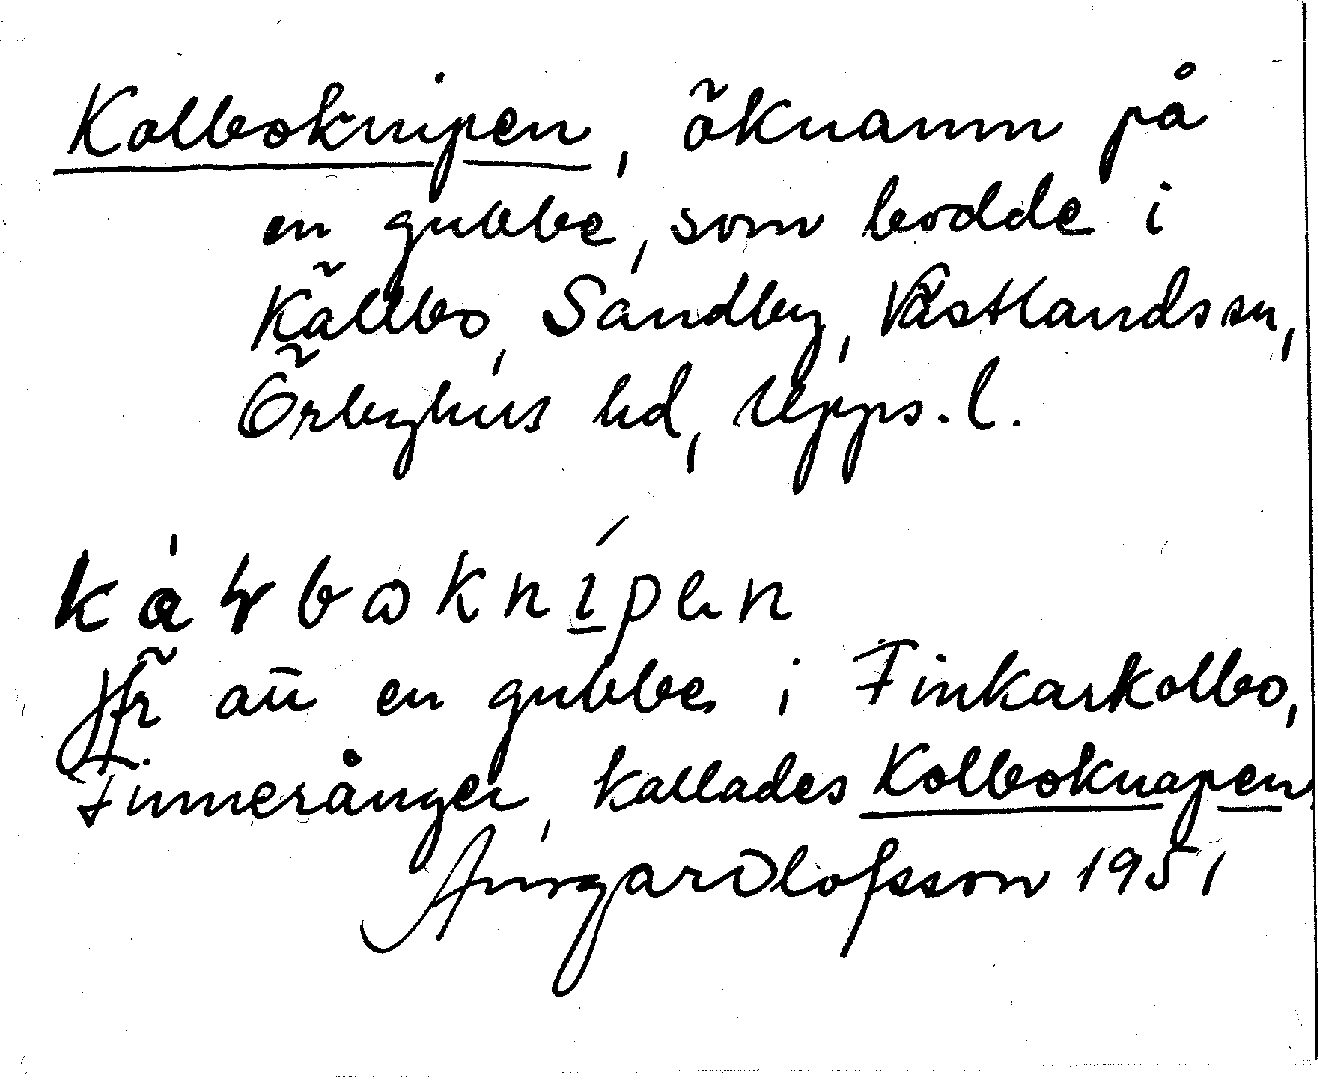 Kolboknipen, öknamn på
en gubbe, som bodde i
Källbo, Sandby, Västlands sn,
Örbyhus hd, Upps. l.
kålboknípen
Jfr att en gubbe i Finkarkolbo,
Finnerånger, kallades Kolboknapen
Olofsson 1951